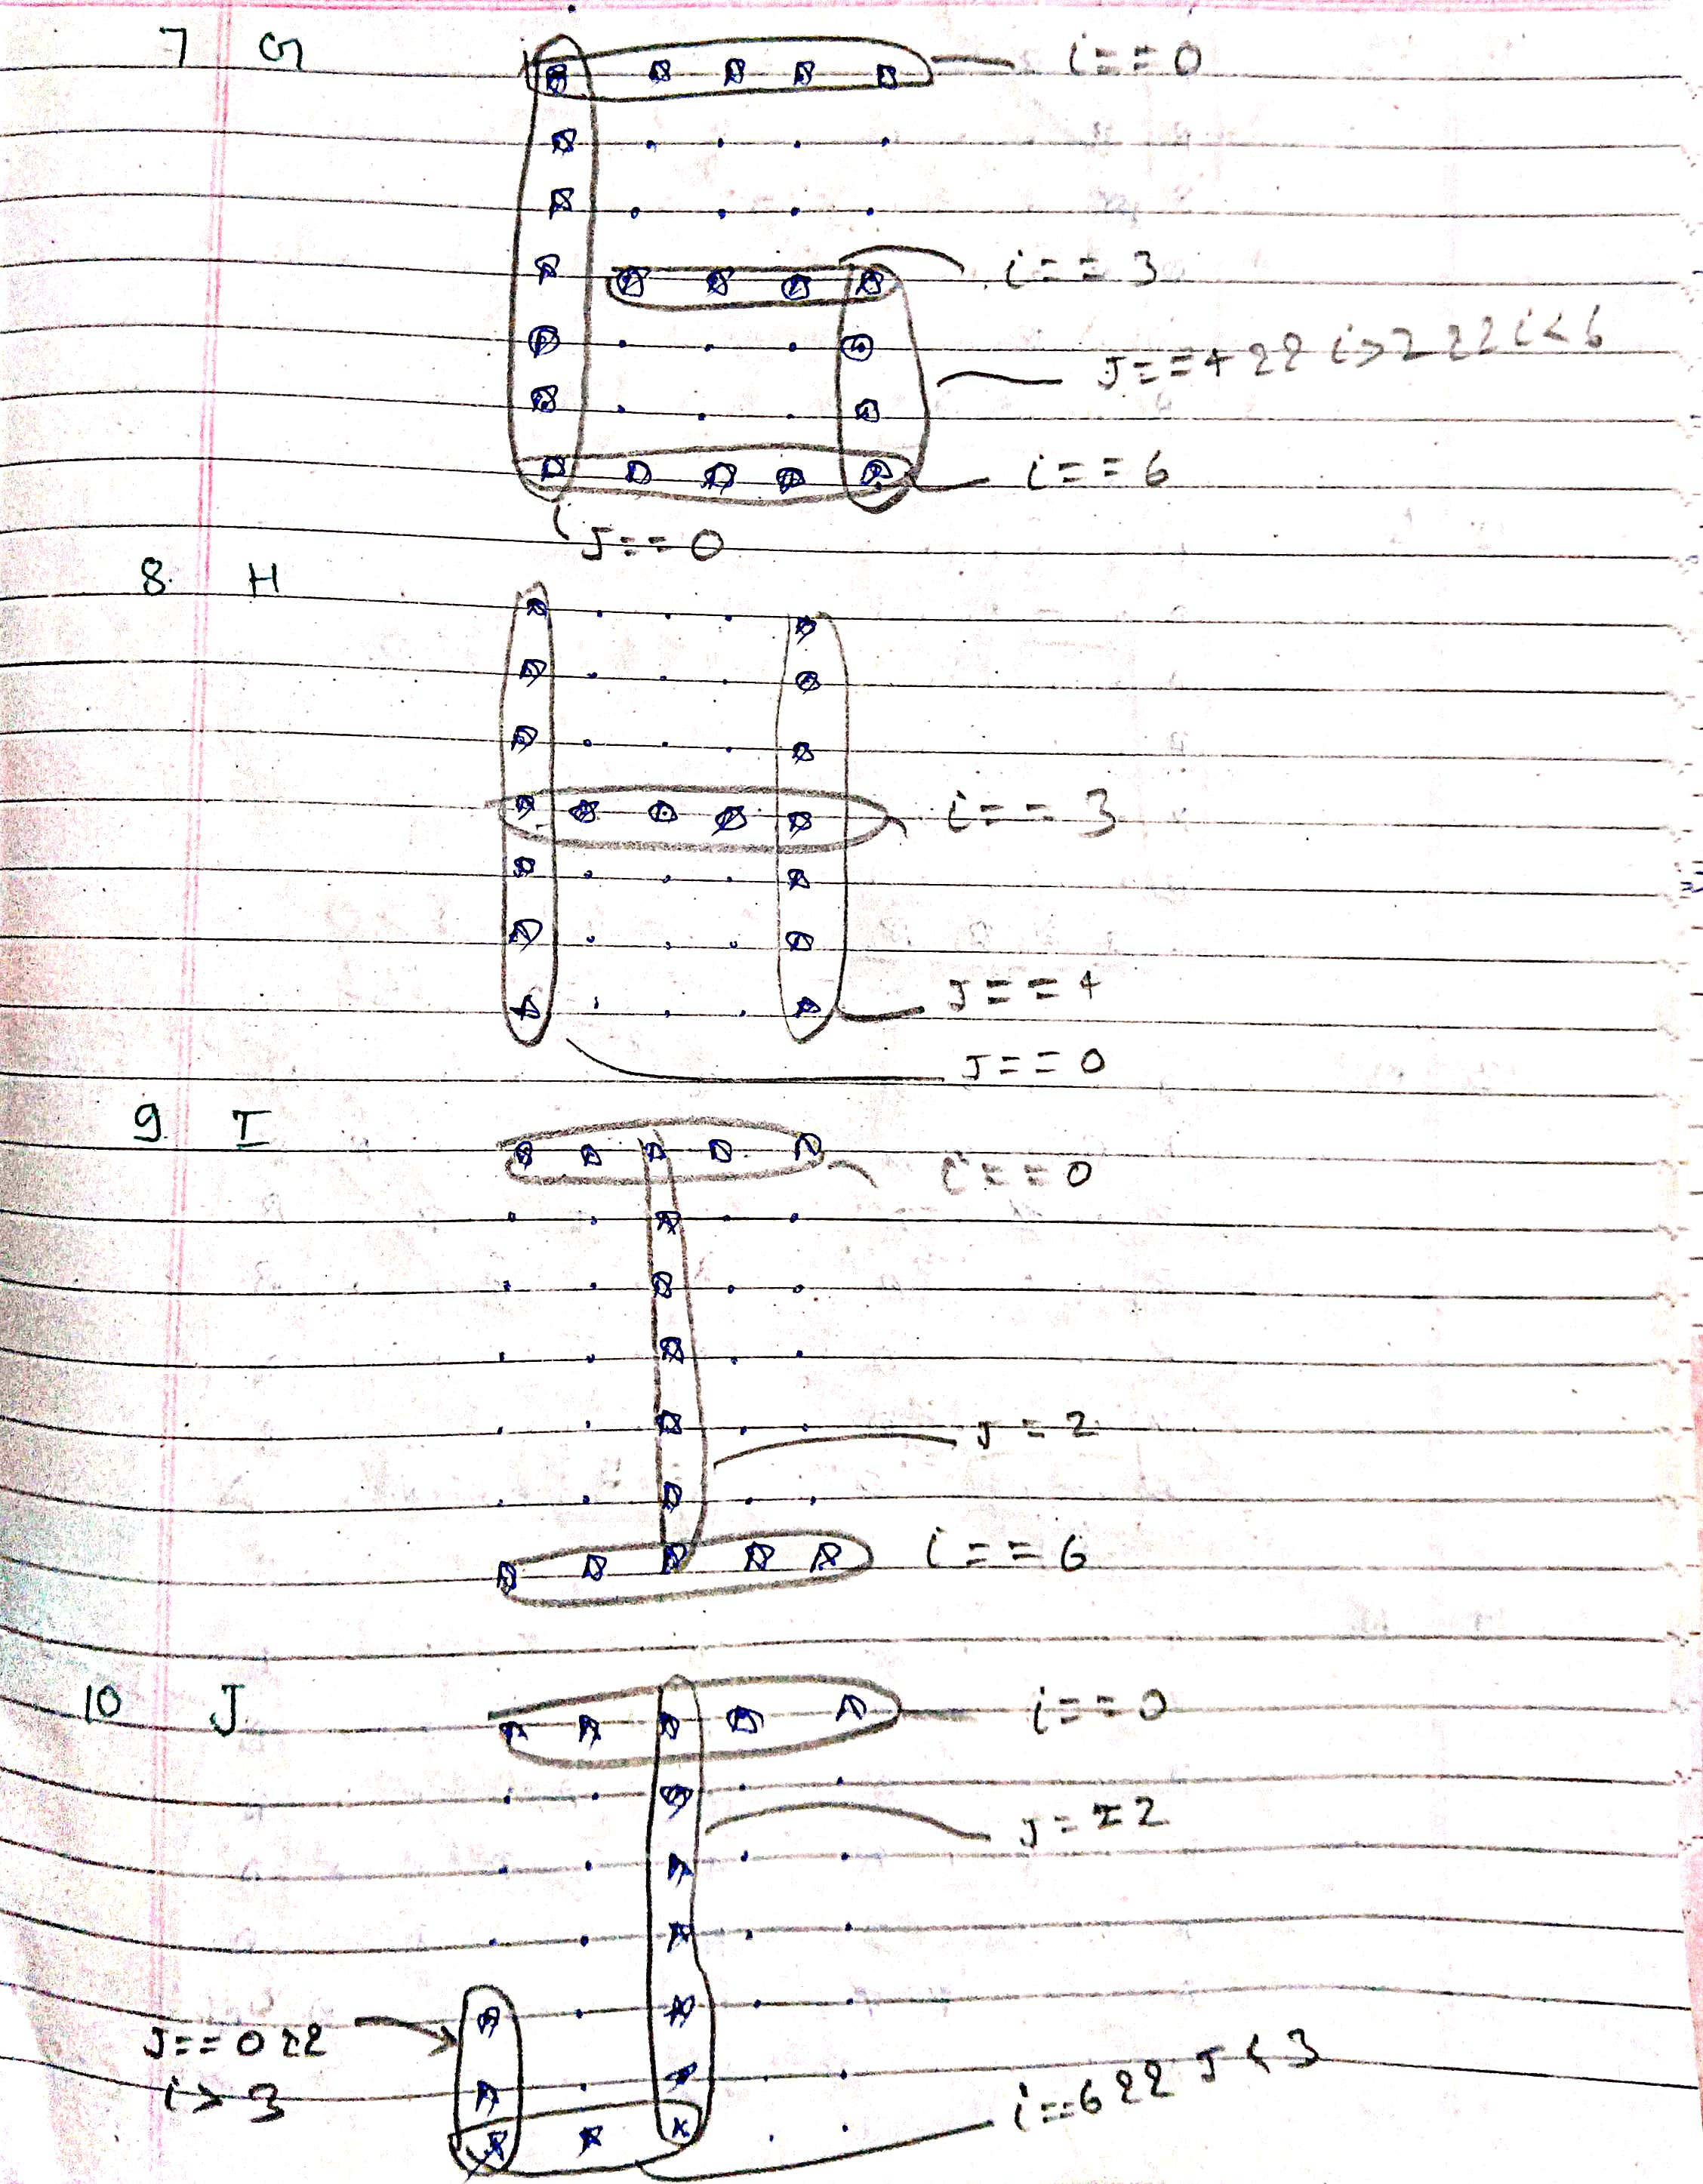 7 G
i==0
i==3
J==4 && i>2 && i<6
i==6
J==0
8. H
i==3
J==4
J==0
9. I
i==0
J=2
i==6
10 J
i==0
J==2
J==0 &&
i>3
i==6 && J<3